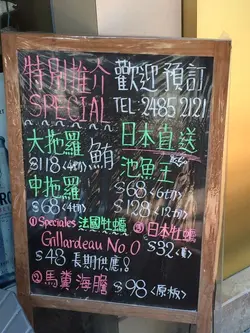 特別推介 歡迎預訂
SPECIAL TEL: 2485 2121
大拖羅 鮪 日本直送
$118<4切> 池魚王
中拖羅 $68<6切>
$68<4切> $128<12切>
①Speciales 法國牡蠣 ③日本牡蠣
Gillardeau No.0 $32<隻>
$48 長期供應!
②馬糞海膽 $98<原板>